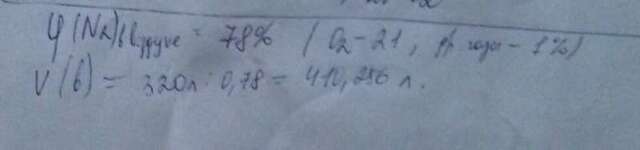 φ(N₂) в воздухе = 78% (O₂ - 21, др. газы - 1%)
V(в) = 320л : 0,78 = 410,256 л.